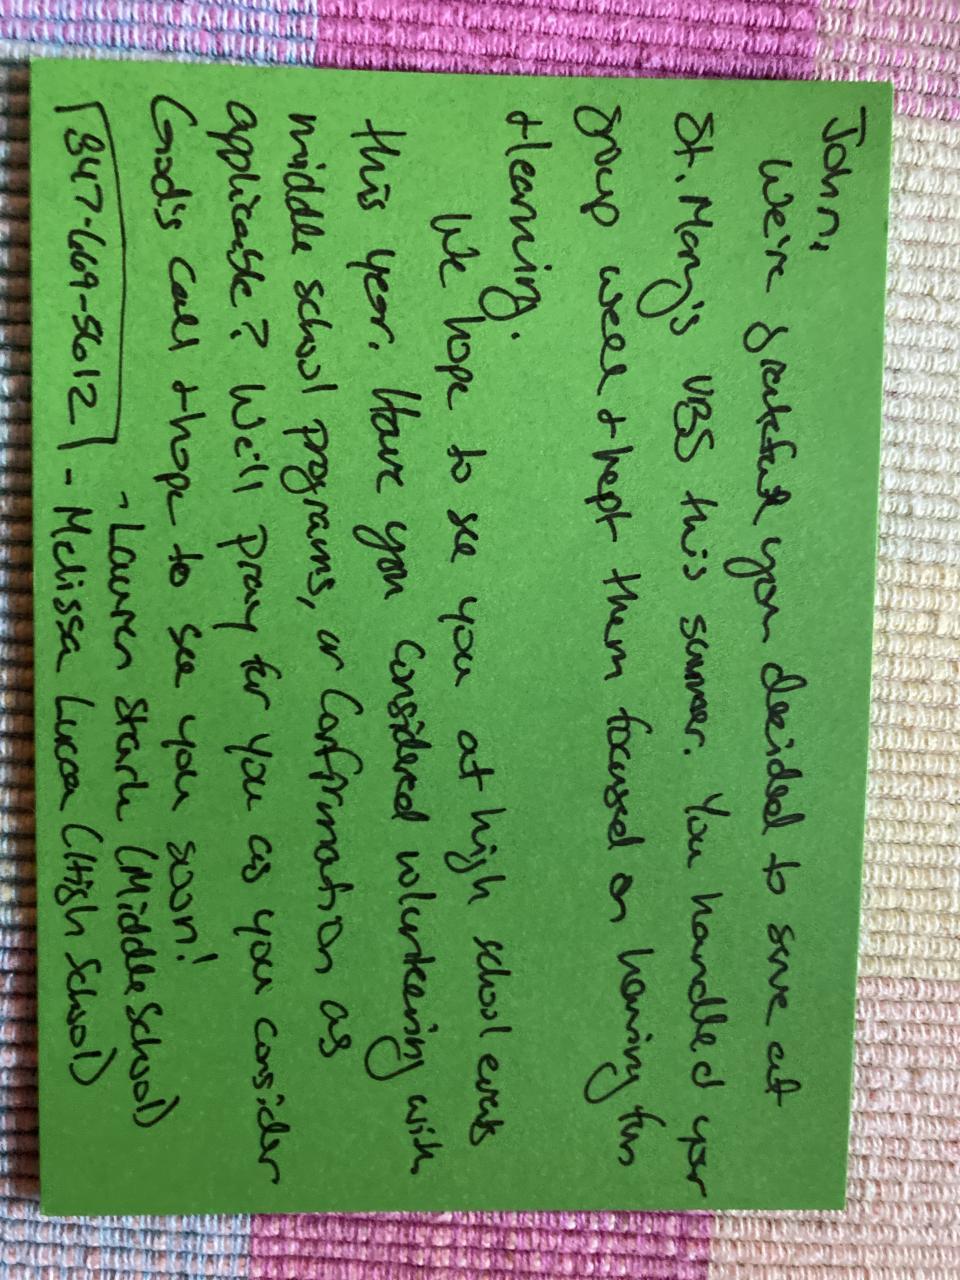 John,
We're grateful you decided to serve at
St. Mary's VBS this summer. You handled your
group well + kept them focused on having fun
+ learning.
We hope to see you at high school events
this year. Have you considered volunteering with
middle school programs, or Confirmation as
applicable? We'll pray for you as you consider
God's call + hope to see you soon!
- Lauren Stark (Middle School)
847-669-5612 - Melissa Lucca (High School)